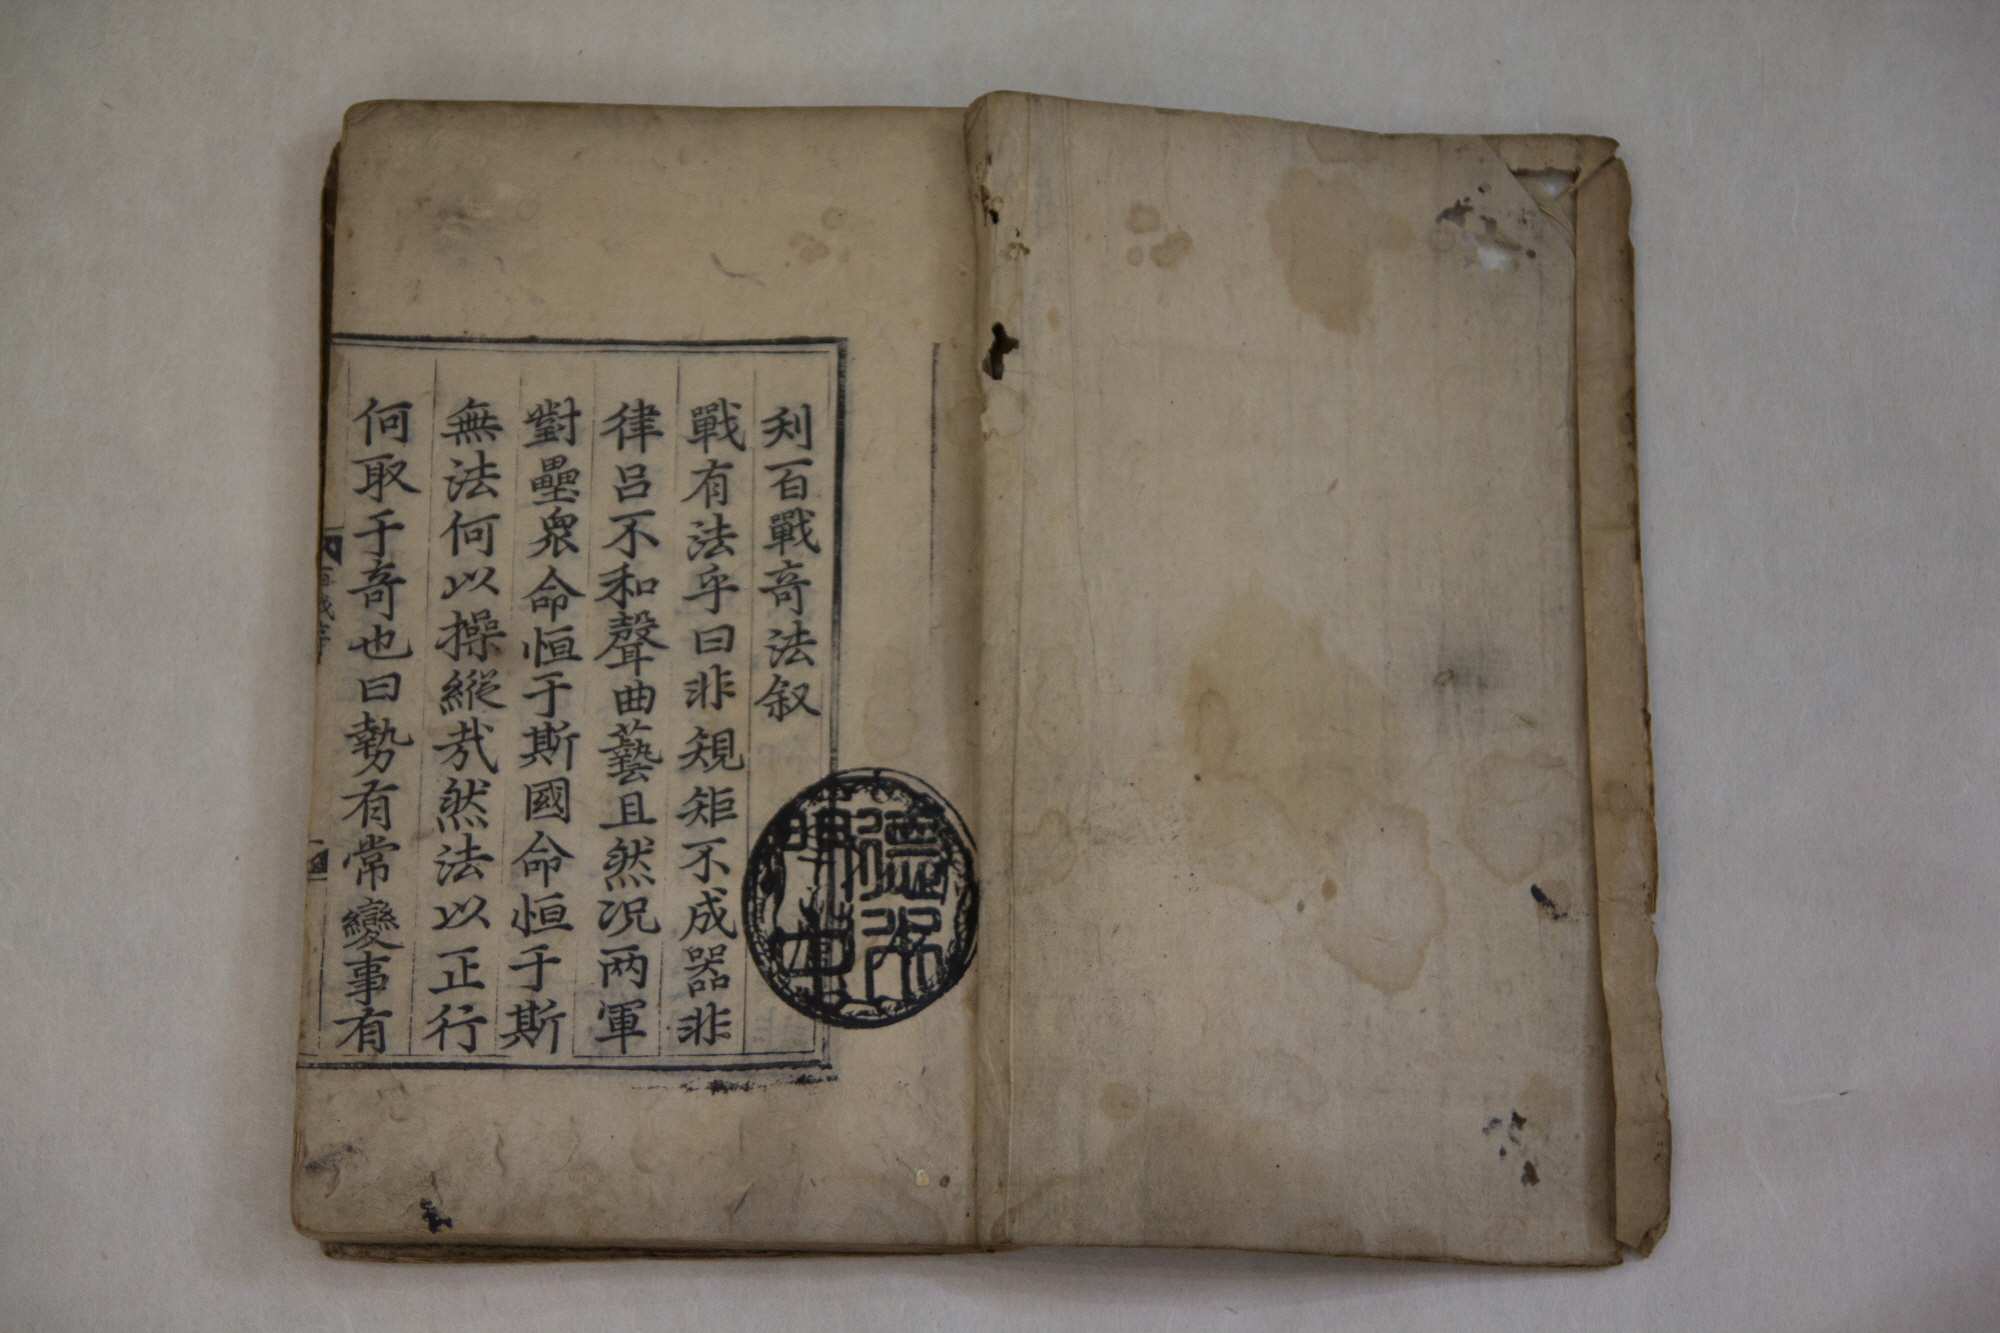 刋百戰竒法叙
戰有法乎曰非䂓矩不成器非
律呂不和聲曲藝且然况两軍
對壘衆命恒于斯國命恒于斯
無法何以操縱㢤然法以正行
何取于竒也曰勢有常變事有